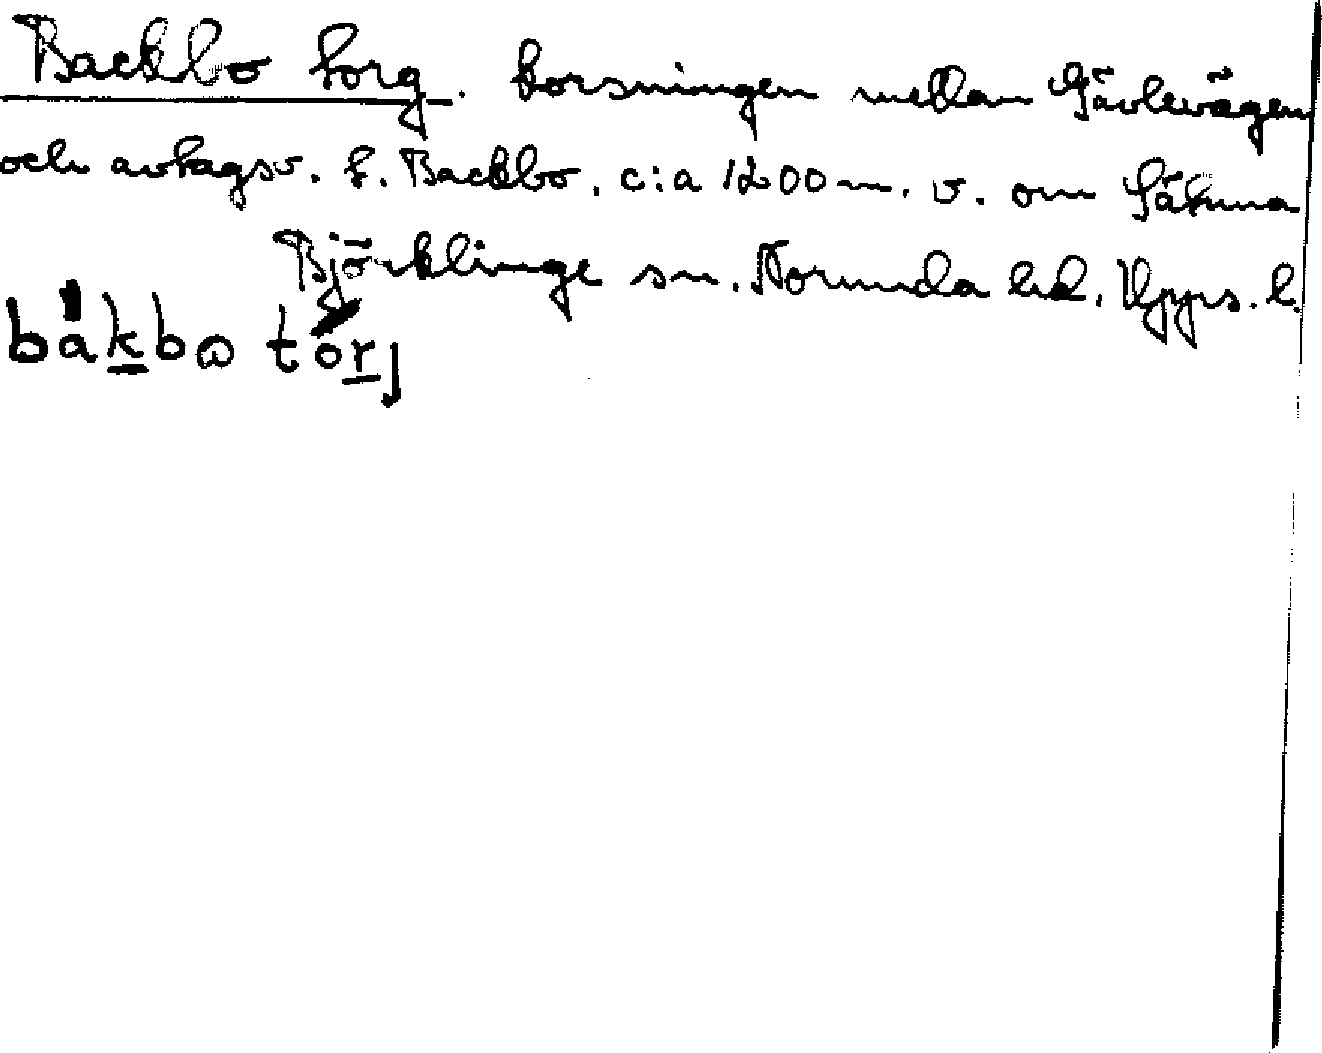 Backbo torg. korsningen mellan Gävlevägen
och avtagsv. t. Backbo. c:a 1200 m. v. om Sätuna
Björklinge sn. Norunda hd. Upps. l.
båkbo tórj